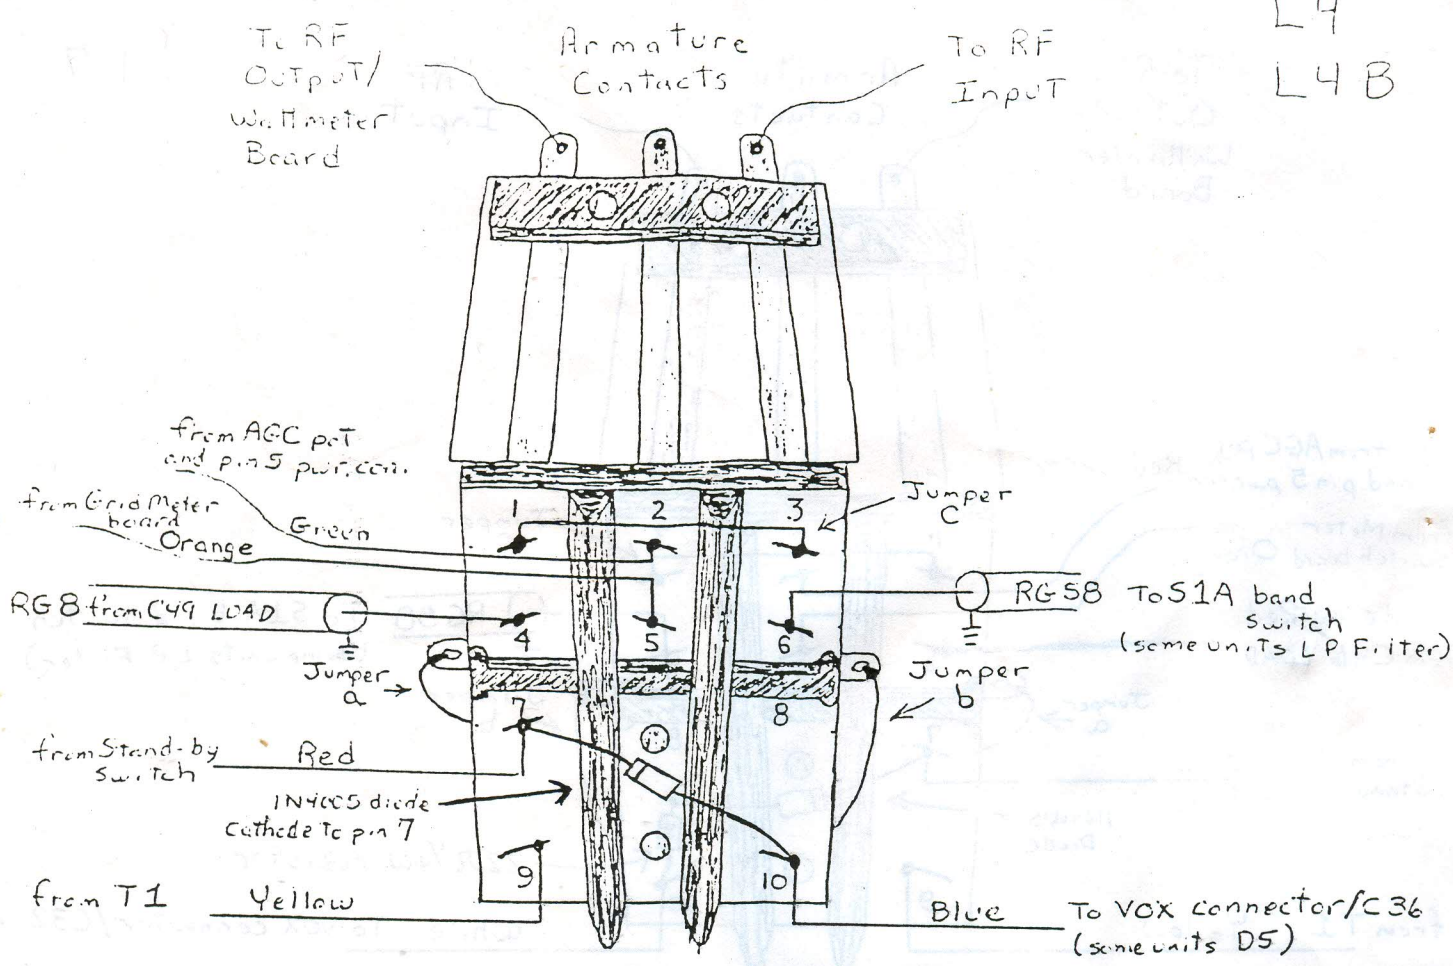 L4
L4B
To RF
Output/
Wattmeter
Board
Armature
Contacts
To RF
Input
from AGC pot
and pin 5 pwr. con.
from Grid Meter
board
Green
Orange
1
2
3
Jumper
C
RG8 from C49 LOAD
4
5
6
RG58
To S1A band
switch
(some units LP Filter)
Jumper
a
Jumper
b
7
8
from Stand-by
switch
Red
1N4005 diode
Cathode to pin 7
9
10
from T1
Yellow
Blue
To VOX connector/C36
(some units D5)